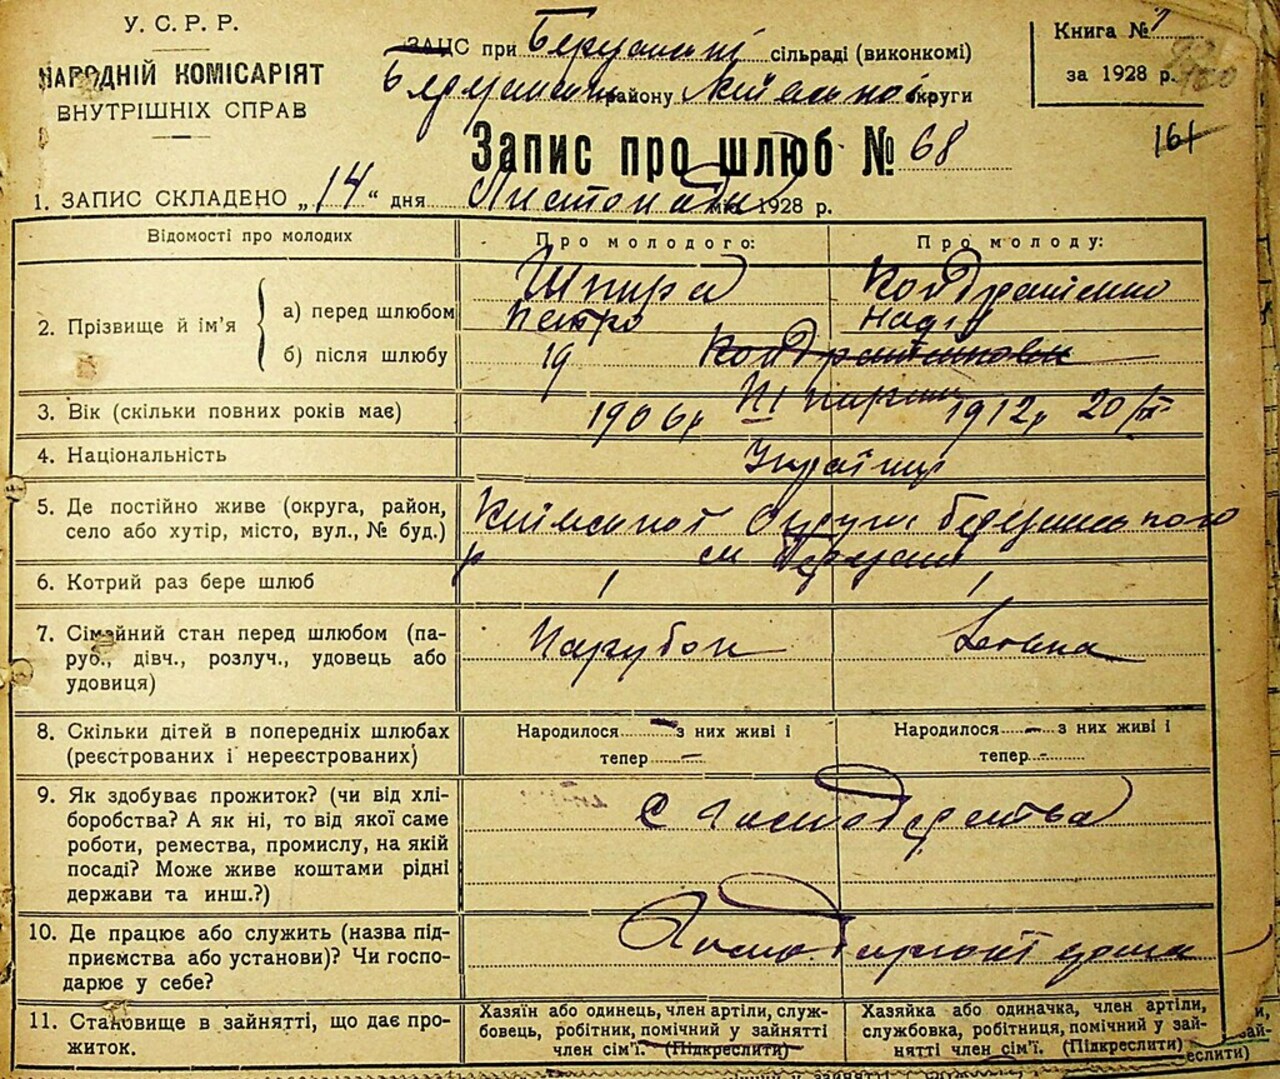 У. С. Р. Р.
НАРОДНІЙ КОМІСАРІЯТ
ВНУТРІШНІХ СПРАВ
ЗАГС при сільраді (виконкомі)
району округи
Книга № 7
за 1928 р.
161
Запис про шлюб № 68
1. ЗАПИС СКЛАДЕНО „14“ дня Листопада м-ця 1928 р.
Відомості про молодих
Про молодого:
Про молоду:
2. Прізвище й ім'я
а) перед шлюбом
Шпира
Петро
Кондратенко
Надія
б) після шлюбу
19
3. Вік (скільки повних років має)
1906р
1912р 20/
4. Національність
Українці
5. Де постійно живе (округа, район,
село або хутір, місто, вул., № буд.)
Київської Округи
р
6. Котрий раз бере шлюб
1
1
7. Сімейний стан перед шлюбом (па-
руб., дівч., розлуч., удовець або
удовиця)
Парубок
8. Скільки дітей в попередніх шлюбах
(реєстрованих і нереєстрованих)
Народилося — з них живі і
тепер —
Народилося — з них живі і
тепер -
9. Як здобуває прожиток? (чи від хлі-
боробства? А як ні, то від якої саме
роботи, ремества, промислу, на якій
посаді? Може живе коштами рідні
держави та инш.?)
С Господарства
10. Де працює або служить (назва під-
приємства або установи)? Чи госпо-
дарює у себе?
дома
11. Становище в зайнятті, що дає про-
житок.
Хазяїн або одинець, член артіли, служ-
бовець, робітник, помічний у зайнятті
член сім'ї. (Підкреслити)
Хазяйка або одиначка, член артіли,
службовка, робітниця, помічний у зай-
нятті член сім'ї. (Підкреслити)
еслити)